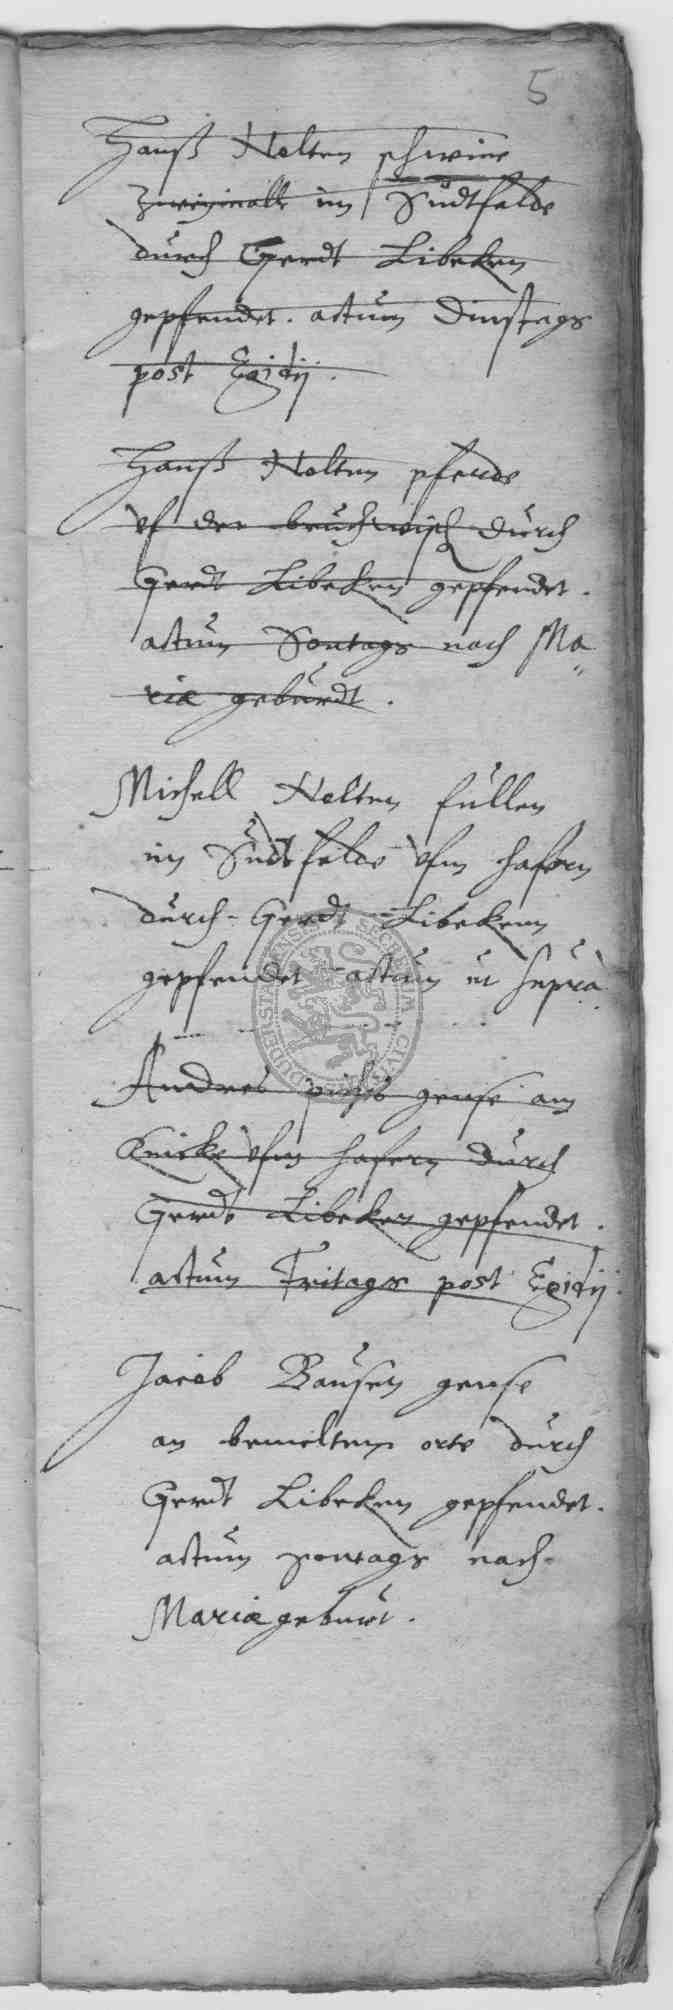 5
Hanß Nolten schwine
zweymall im Südtfelde
durch Gerdt Libeken
gepfendet. actum Dinstags
post Egidij.
Hanß Nolten pferde
vf der bruchwisch durch
Gerdt Libeken gepfendet.
actum Sontags nach Ma„
riæ geburdt.
Michell Nolten füllen
im Südtfelde vfm hafern
durch Gerdt Libekenn
gepfendet actum ut suprà
Andres gense am
Knicke vfm hafern durch
Gerdt Libeken gepfendet.
actum Fritags post Egidij.
Jacob Bausen gense
an bemeltem orte durch
Gerdt Libeken gepfendet.
actum Sontags nach
Mariæ geburt.